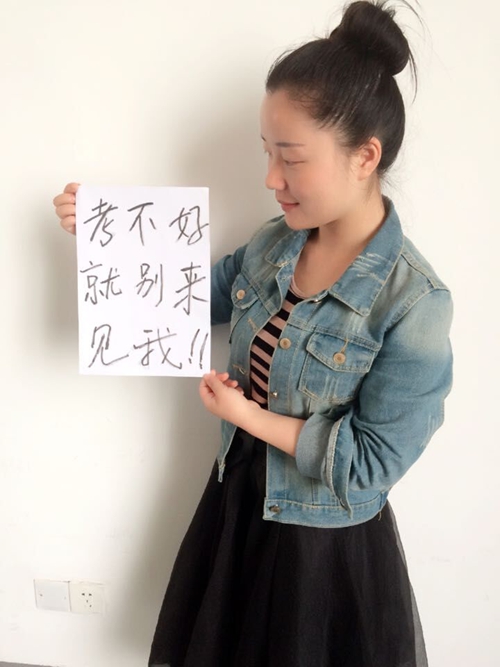 考不好
就别来
见我!!